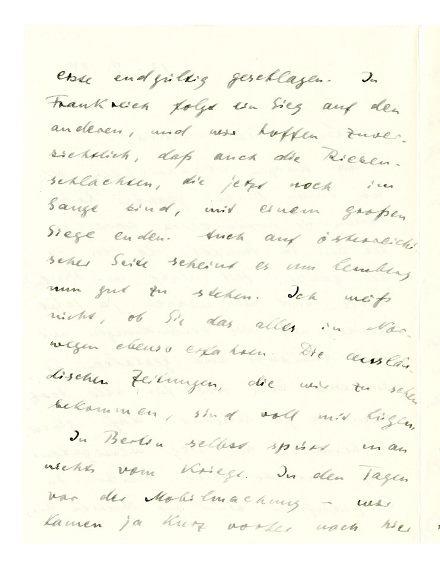 erste endgültig geschlagen. In
Frankreich folgt ein Sieg auf den
anderen, und wir hoffen zuver-
sichtlich, daß auch die Riesen-
schlachten, die jetzt noch im
Gange sind, mit einem großen
Siege enden. Auch auf österreichi
scher Seite scheint es um Lemberg
nun gut zu stehen. Ich weiß
nicht, ob Sie das alles in Nor-
wegen ebenso erfahren. Die auslän
dischen Zeitungen, die wir zu sehen
bekommen, sind voll mit Lügen.
In Berlin selbst spürt man
nichts vom Kriege. In den Tagen
vor der Mobilmachung – wir
kamen ja kurz vorher noch hier